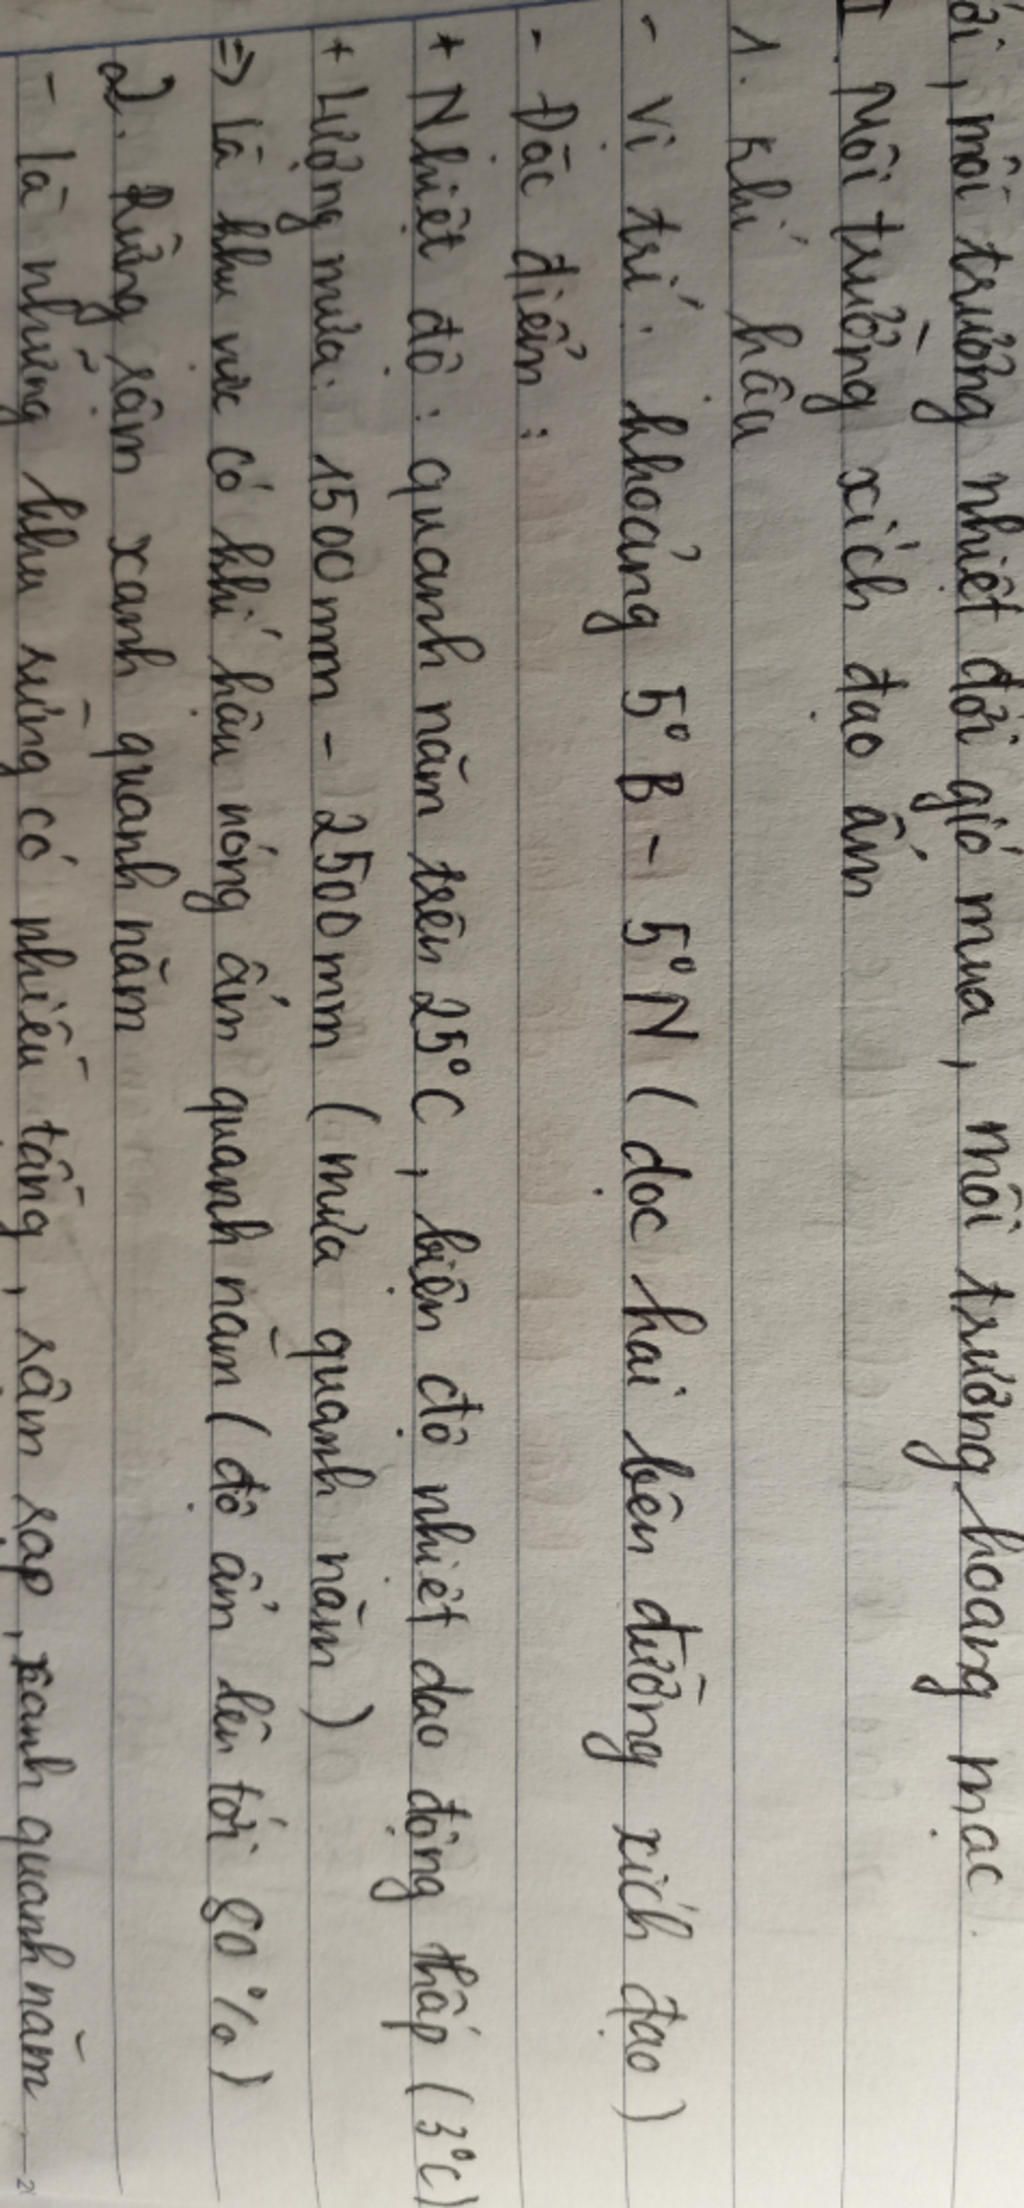 ới, môi trường nhiệt đới gió mùa, môi trường hoang mạc.
I. Môi trường xích đạo ẩm
1. Khí hậu
- Vị trí: khoảng 5°B - 5°N (dọc hai bên đường xích đạo)
- Đặc điểm:
+ Nhiệt độ: quanh năm trên 25°C, biên độ nhiệt dao động thấp (3°C)
+ Lượng mưa: 1500mm - 2500mm (mưa quanh năm)
=> Là khu vực có khí hậu nóng ẩm quanh năm (độ ẩm lên tới 80%)
2. Rừng rậm xanh quanh năm
- Là những khu rừng có nhiều tầng, rậm rạp, xanh quanh năm